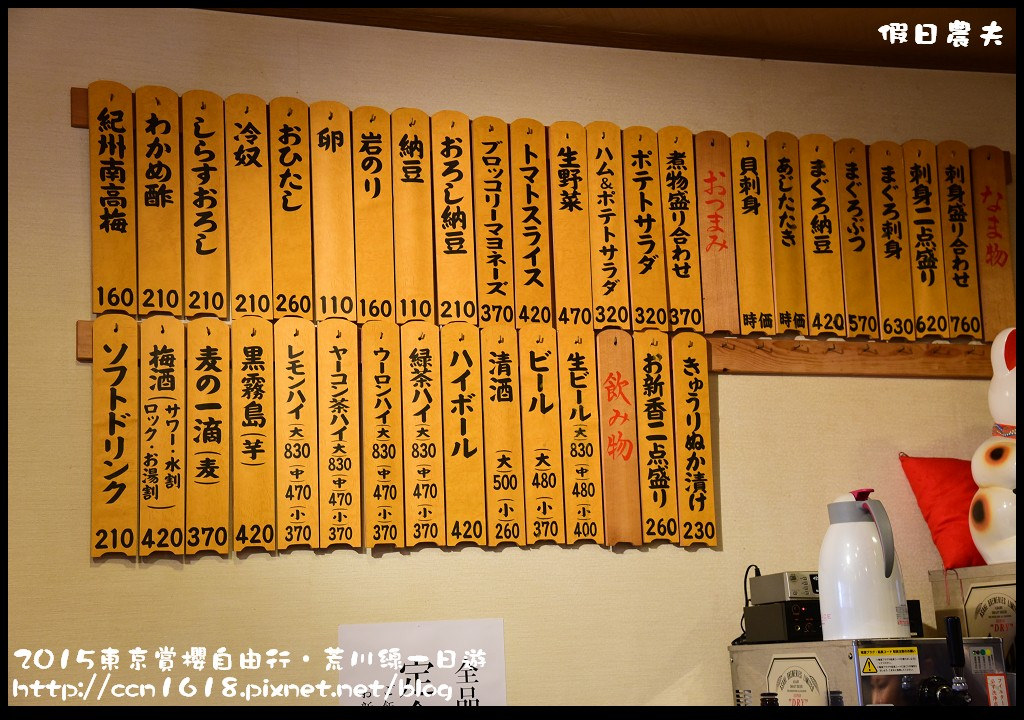 假日農夫
なま物
刺身盛り合わせ 760
刺身二点盛り 620
まぐろ刺身 630
まぐろぶつ 570
まぐろ納豆 420
あじたたき 時価
貝刺身 時価
おつまみ
煮物盛り合わせ 370
ポテトサラダ 320
ハム&ポテトサラダ 320
生野菜 470
トマトスライス 420
ブロッコリーマヨネーズ 370
おろし納豆 210
納豆 110
岩のり 160
卵 110
おひたし 260
冷奴 210
しらすおろし 210
わかめ酢 210
紀州南高梅 160
きゅうりぬか漬け 230
お新香二点盛り 260
飲み物
生ビール (大) 830 (中) 480 (小) 400
ビール (大) 480 (小) 370
清酒 (大) 500 (小) 260
ハイボール 420
緑茶ハイ (大) 830 (中) 470 (小) 370
ウーロンハイ (大) 830 (中) 470 (小) 370
ヤーコン茶ハイ (大) 830 (中) 470 (小) 370
レモンハイ (大) 830 (中) 470 (小) 370
黒霧島 (芋) 420
麦の一滴 (麦) 370
梅酒 (サワー・水割 ロック・お湯割) 420
ソフトドリンク 210
全品
定
2015東京賞櫻自由行・荒川線一日游
http://ccn1618.pixnet.net/blog
"DRY"